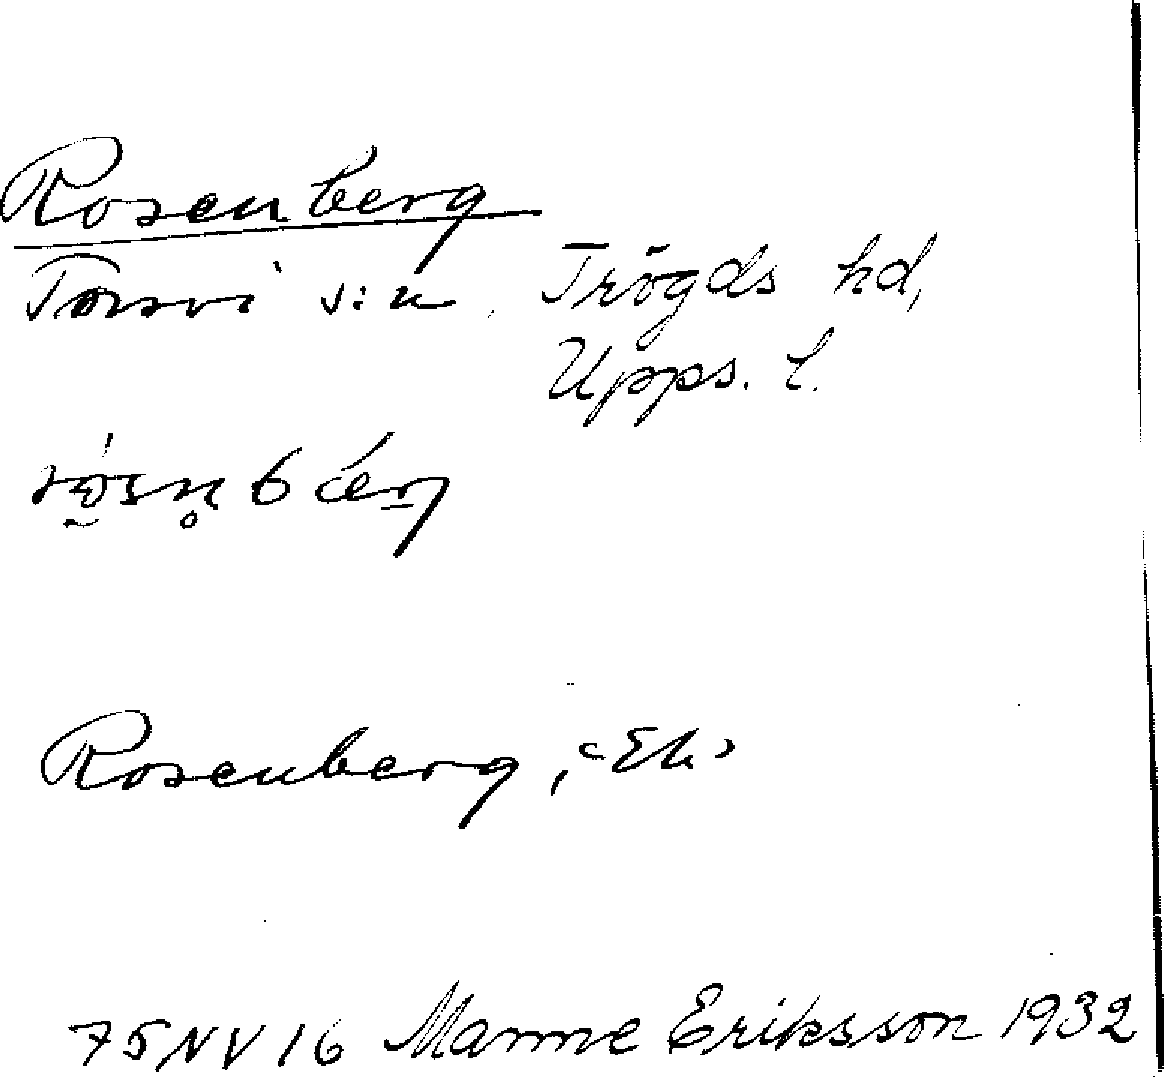 Rosenberg
Torsvi s:n, Trögds hd,
Upps. l.
Rosenberg, <Eh>
75 NV 16 Manne Eriksson 1932